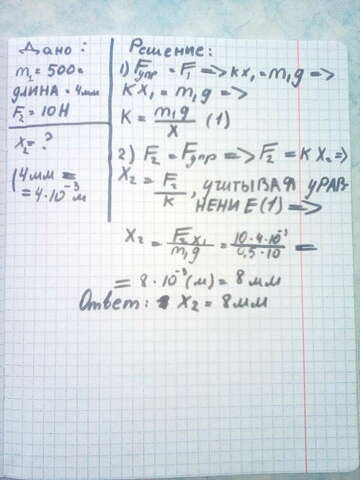 Дано:
m₁ = 500г
длина = 4мм
F₂ = 10Н
x₂ = ?
4мм =
= 4·10⁻³м
Решение:
1) Fупр = F₁ => kx₁ = m₁g =>
kx₁ = m₁g =>
k = m₁g/x (1)
2) F₂ = Fупр => F₂ = kx₂ =>
x₂ = F₂/k, учитывая урав-
нение (1) =>
x₂ = F₂x₁/m₁g = 10·4·10⁻³/0,5·10 =
= 8·10⁻³(м) = 8мм
Ответ: x₂ = 8мм